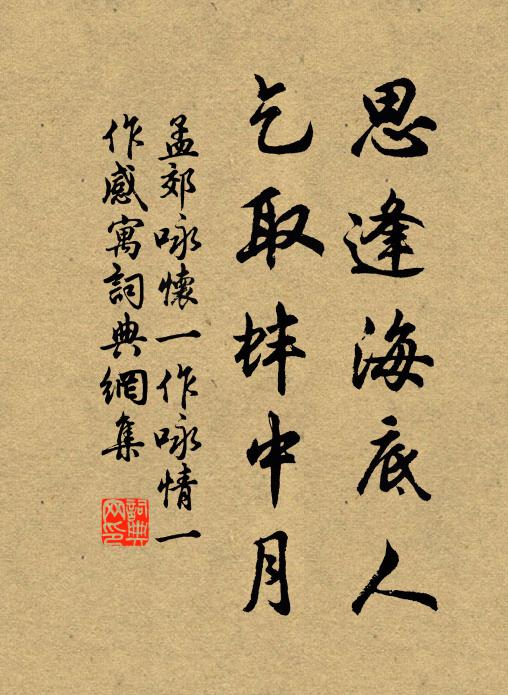 思逢海底人
乞取蚌中月
孟郊咏懷一作咏情一
作感寓詞典網集
詞典
网印